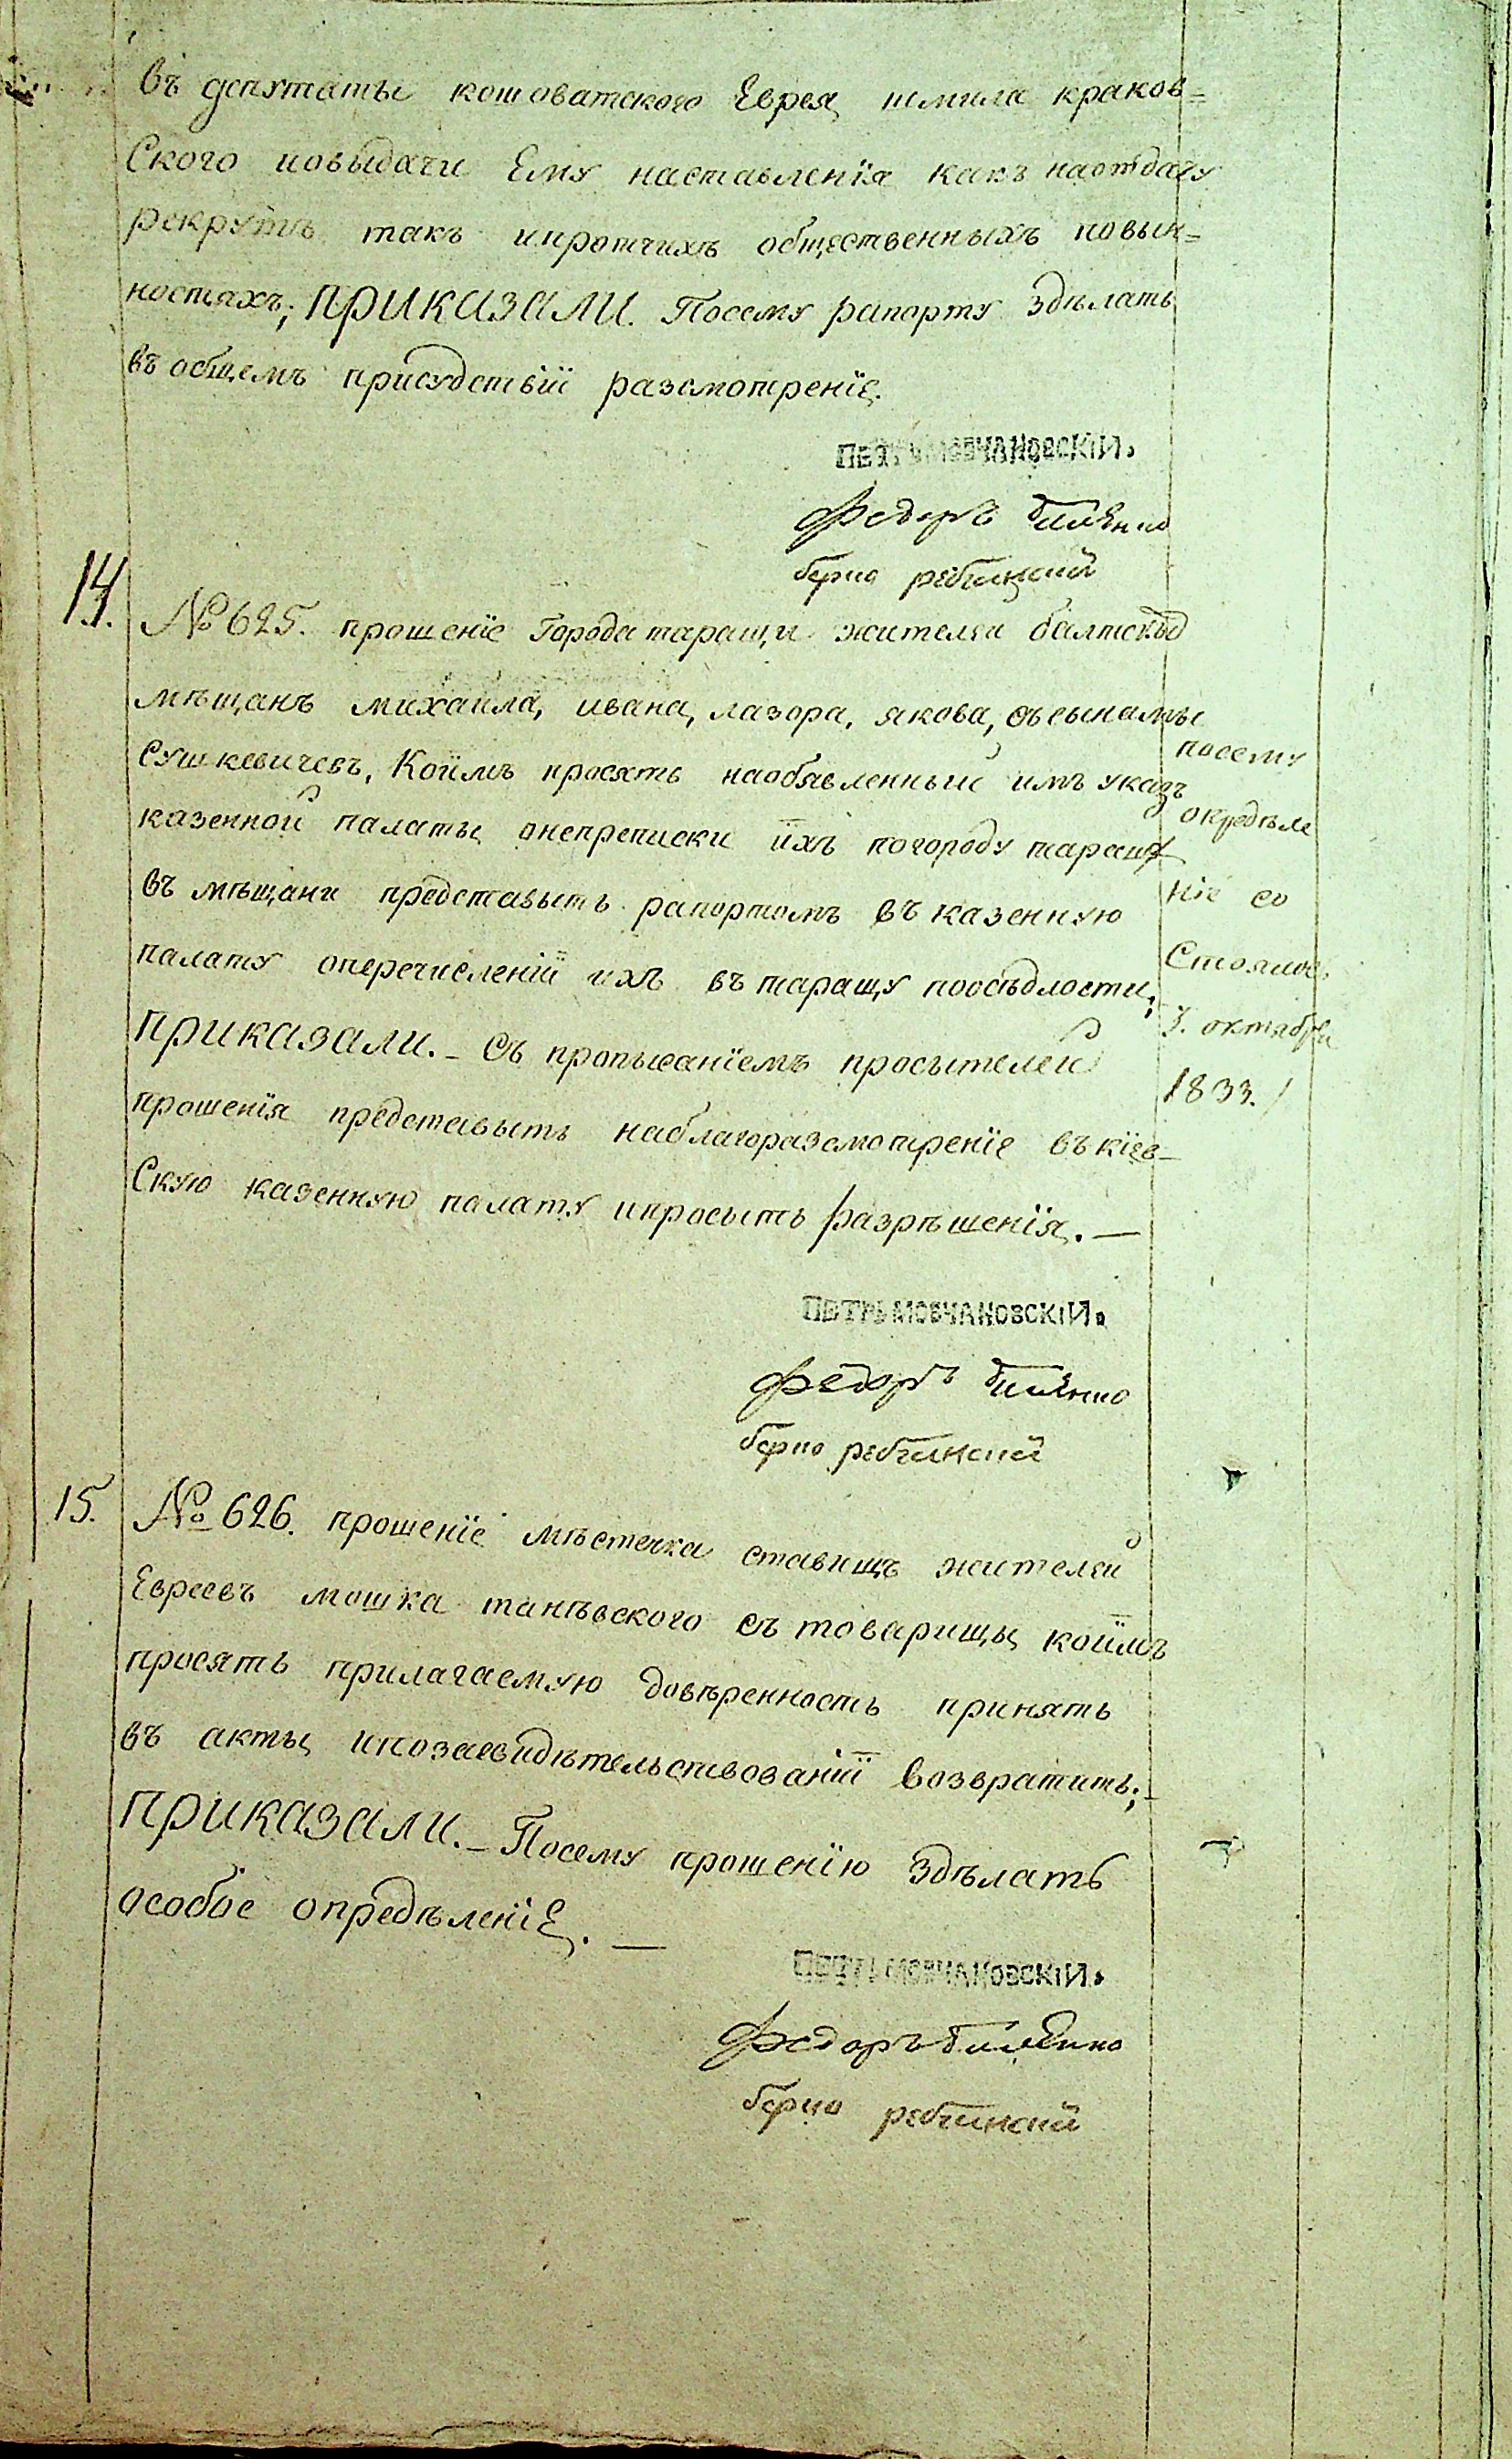 въ депутаты кошоватского Еврея шмила краков=
Ского иовыдачи Ему наставленїя какъ наотдачу
рекрутъ такъ ипротчихъ общественныхъ повын=
ностяхъ; ПРИКАЗАЛИ. Посему рапорту здѣлать
въ общемъ присудствїи разсмотренїе.
ПЕТРЪ МОВЧАНОВСКІЙ.
Федоръ
берко
14. № 625. прошенїе Города таращи жителей балтскихъ
мѣщанъ михаила, ивана, лазора, якова, съ сынамы
Сушкевичевъ, Коимъ просятъ наобявленный имъ указъ
казенной палаты онепреписки ихъ погороду таращѣ
въ мѣщане представыть рапортомъ въ казенную
палату оперечисленїи ихъ въ таращу поосѣдлости;
ПРИКАЗАЛИ. – Съ пропысанїемъ просытелей
прошенїя представыть наблагоразсмотренїе въ кїев-
Скую казенную палату ипросыть разрѣшенїя. —
посему
опредѣле
нїе со
Стоялос.
3. октября
1833. /
ПЕТРЪ МОВЧАНОВСКІЙ.
Федоръ
берко
15. № 626. прошенїе мѣстечка ставищъ жителей
Евреевъ мошка танѣвского съ товарищы коимъ
просятъ прилагаемую довѣренность принять
въ акты ипозасвидѣтельствованїи возвратить;–
ПРИКАЗАЛИ. – Посему прошенїю здѣлать
особое опредѣленїе. —
ПЕТРЪ МОВЧАНОВСКІЙ.
Федоръ
берко